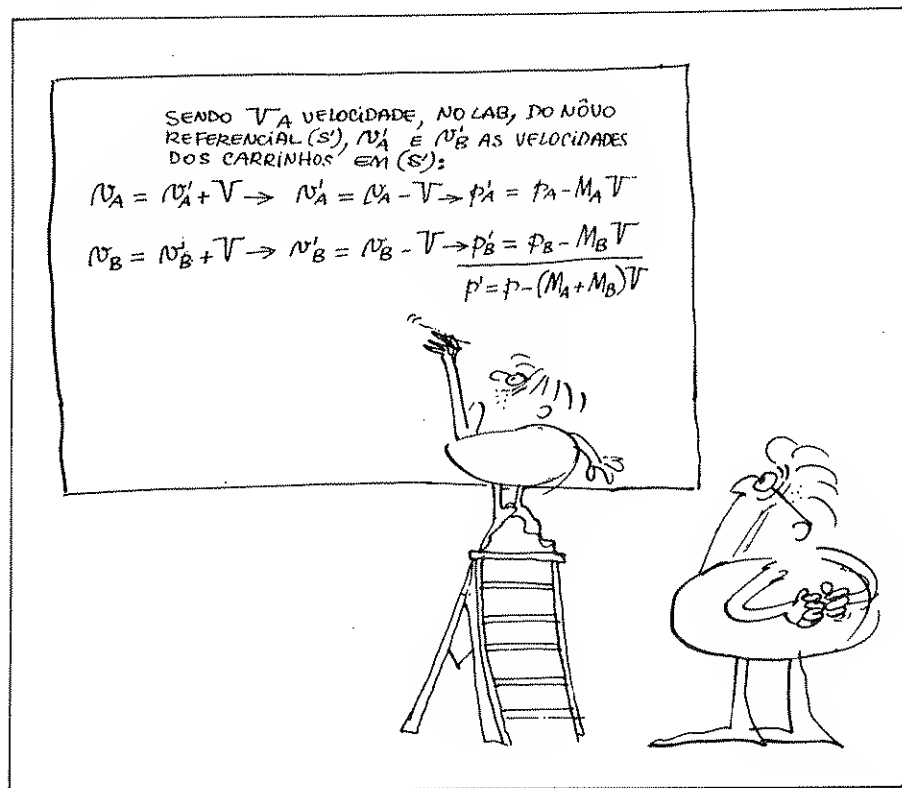 SENDO V A VELOCIDADE, NO LAB, DO NÔVO
REFERENCIAL (S'), v'A E v'B AS VELOCIDADES
DOS CARRINHOS EM (S'):
vA = v'A + V → v'A = vA - V → p'A = pA - MA V
vB = v'B + V → v'B = vB - V → p'B = pB - MB V
p' = p - (MA + MB)V